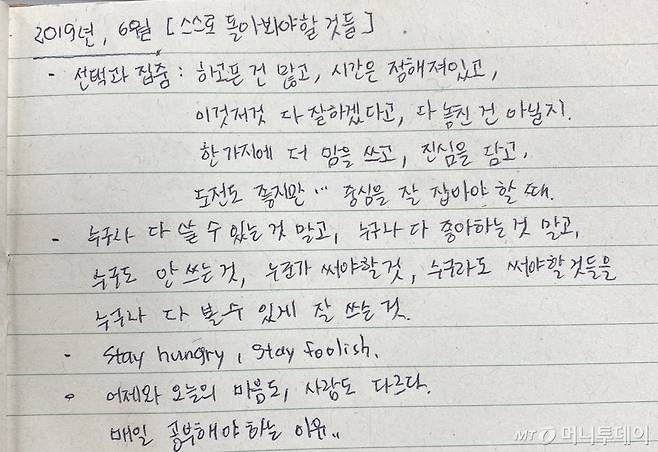 2019년, 6월 [스스로 돌아봐야할 것들]
- 선택과 집중 : 하고픈 건 많고, 시간은 정해져있고,
이것저것 다 잘하겠다고, 다 놓친 건 아닐지.
한가지에 더 맘을 쓰고, 진심을 담고,
도전도 좋지만… 중심을 잘 잡아야 할 때.
- 누구나 다 쓸 수 있는 것 말고, 누구나 다 좋아하는 것 말고,
누구도 안 쓰는 것, 누군가 써야할 것, 누구라도 써야할 것들을
누구나 다 볼 수 있게 잘 쓰는 것.
- Stay hungry, Stay foolish.
- 어제와 오늘의 마음도, 사람도 다르다.
매일 공부해야 하는 이유..
MT 머니투데이